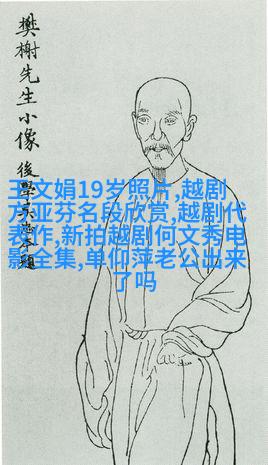 樊榭先生小像
後學
王文娟19岁照片,越剧
方亚芬名段欣赏,越剧代
表作,新拍越剧何文秀电
影全集,单仰萍老公出来
了吗